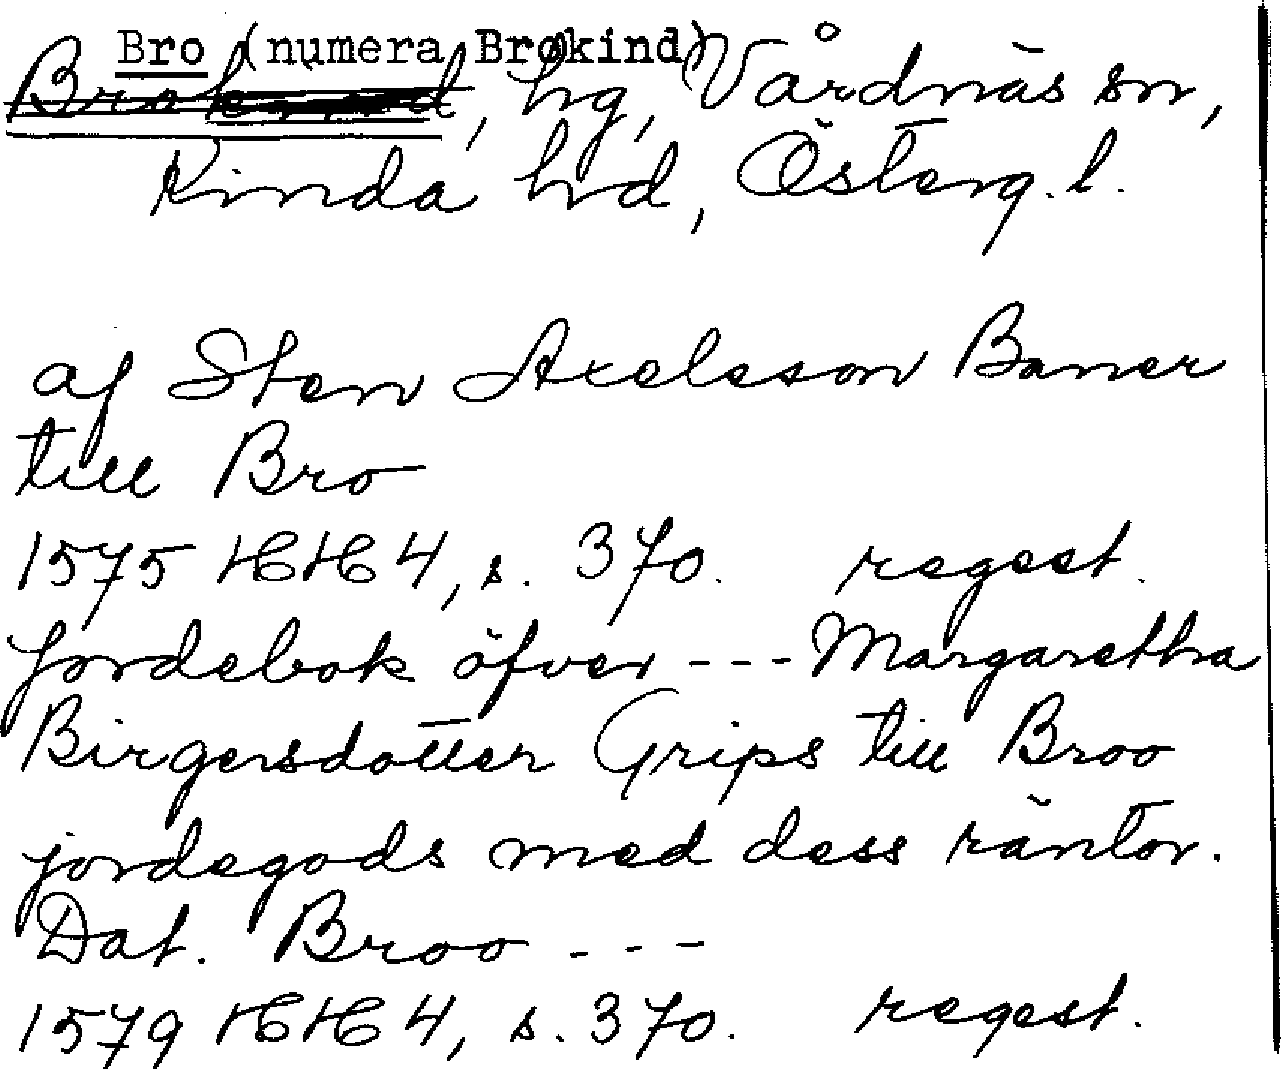 Bro (numera Brokind)
Brokind, hg, Vårdnäs sn,
Kinda hd, Österg.l.
af Sten Axelsson Baner
till Bro
1575 HH 4, s. 370. regest.
Jordebok öfver --- Margaretha
Birgersdotter Grips till Broo
jordegods med dess räntor.
Dat. Broo ---
1579 HH 4, s. 370. regest.